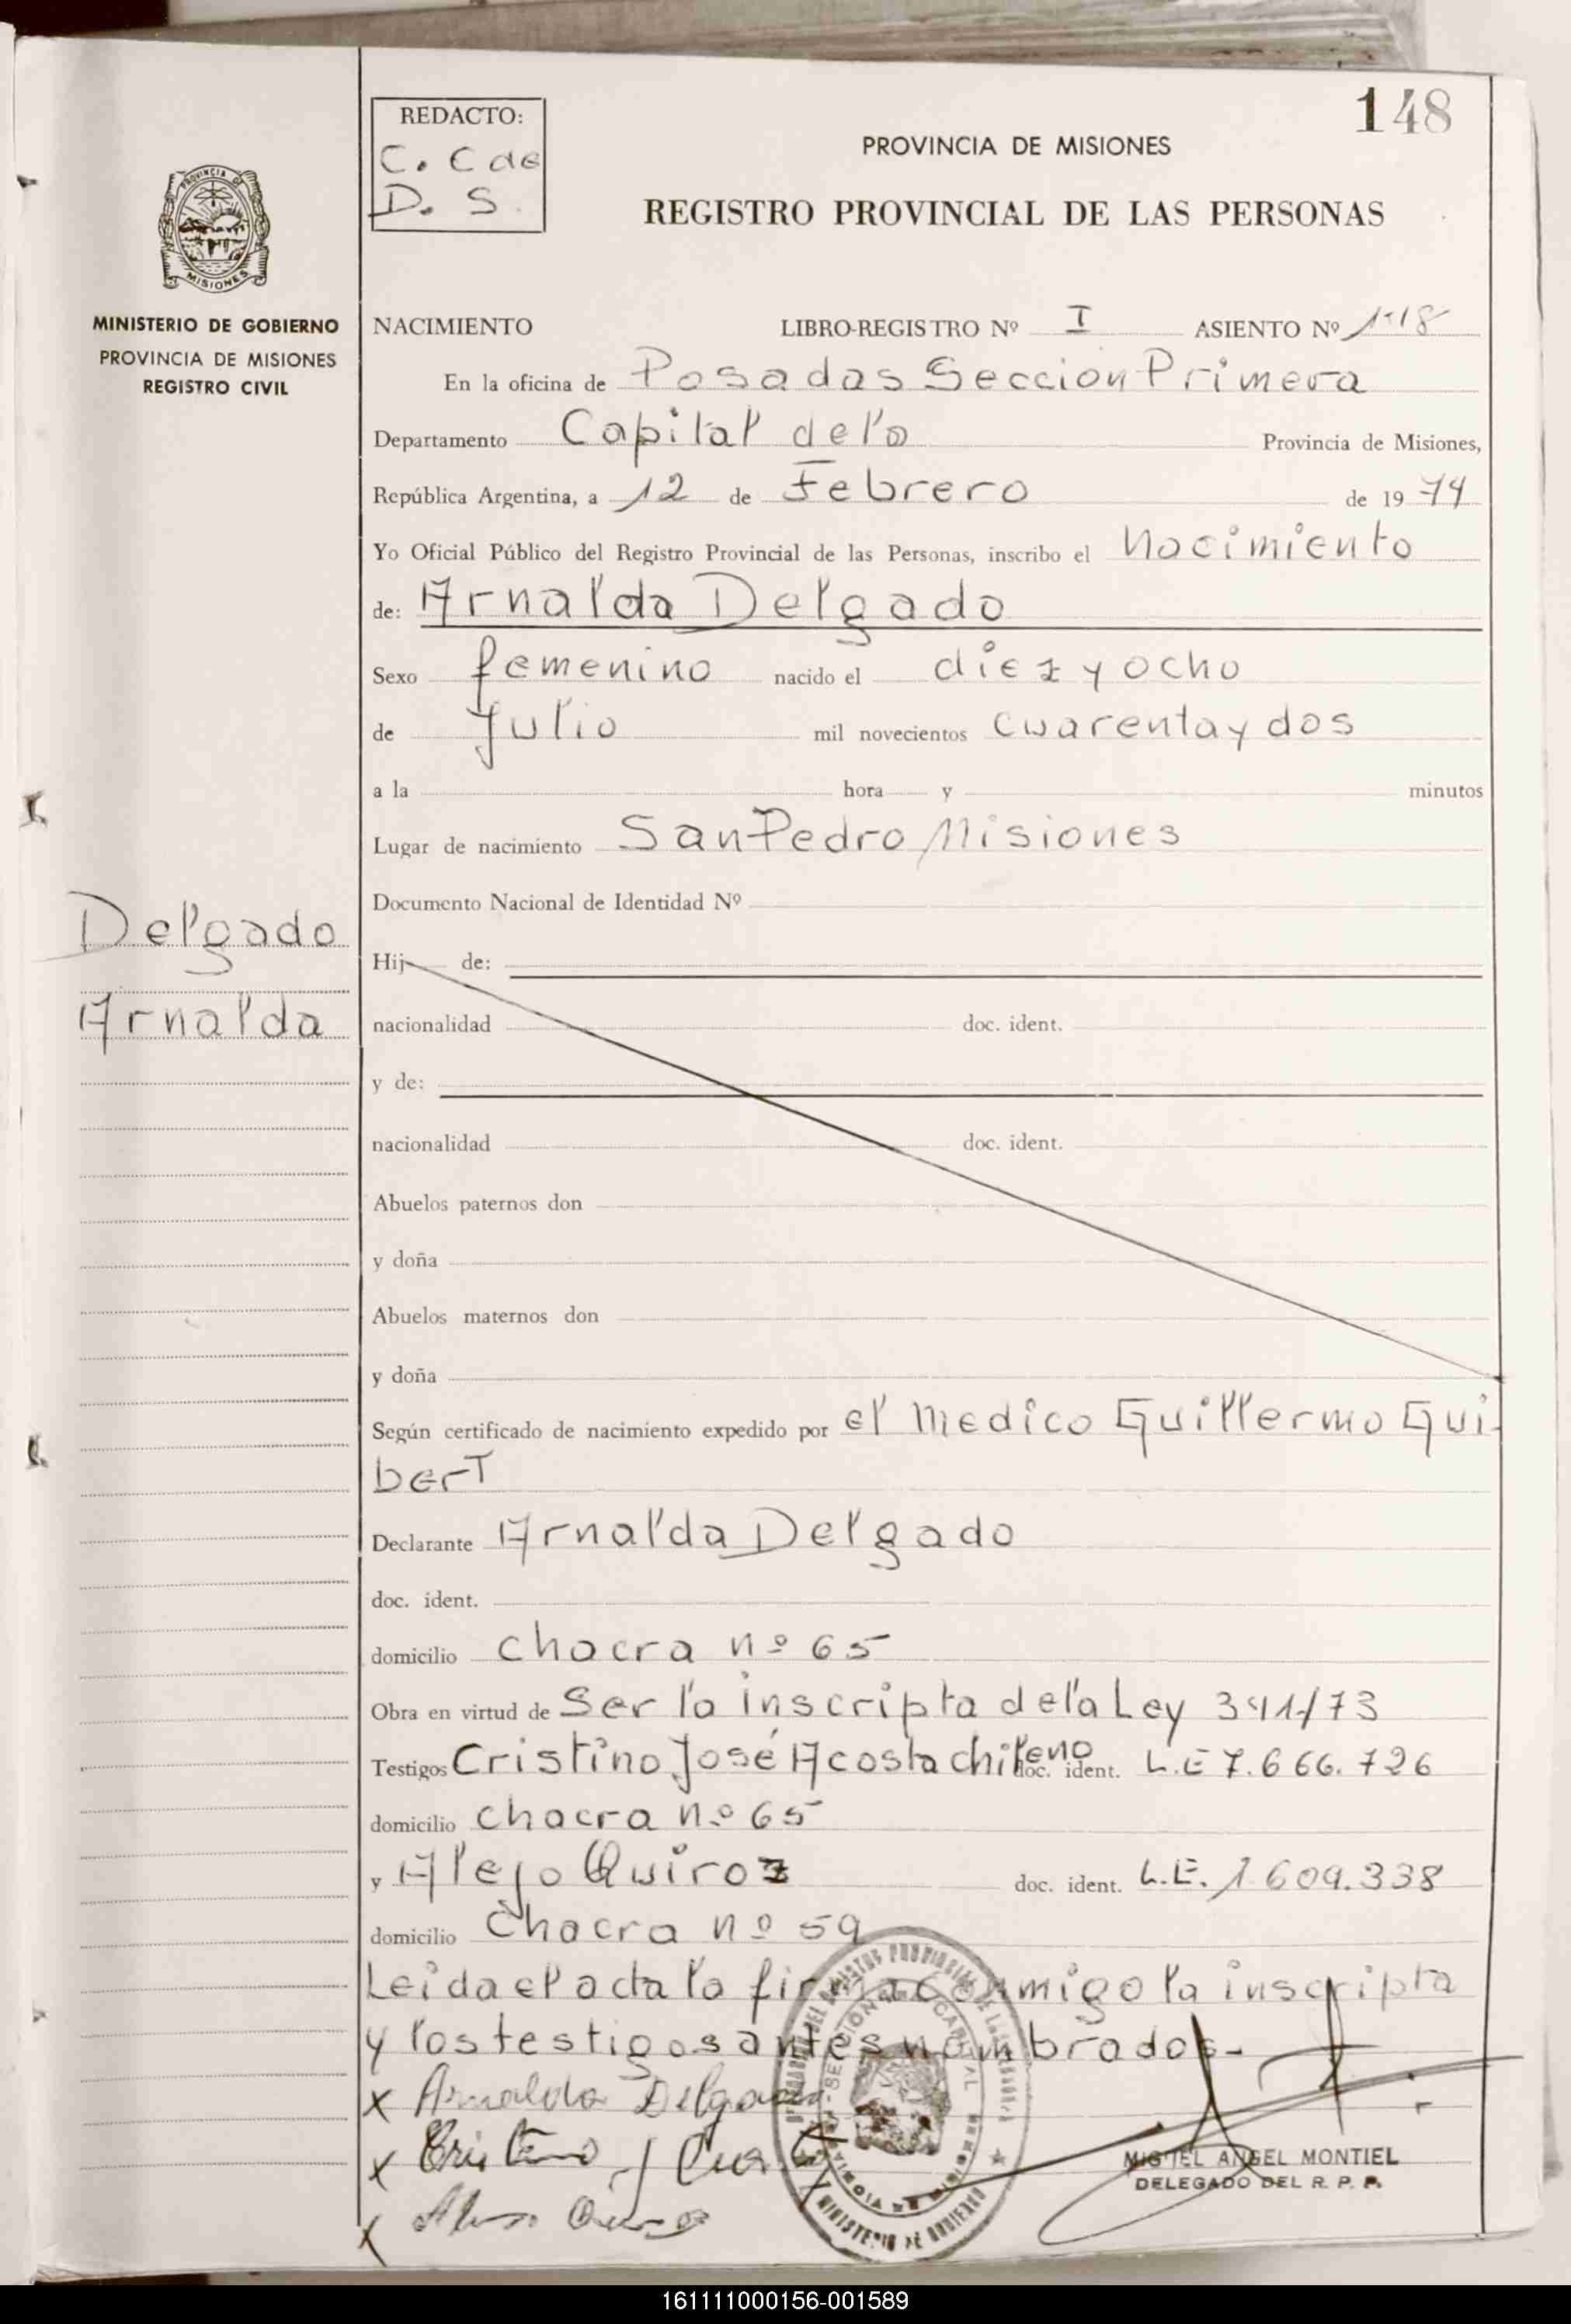 148
REDACTO:
C. C de
D. S.
PROVINCIA DE MISIONES
REGISTRO PROVINCIAL DE LAS PERSONAS
PROVINCIA DE
MISIONES
MINISTERIO DE GOBIERNO
PROVINCIA DE MISIONES
REGISTRO CIVIL
NACIMIENTO LIBRO-REGISTRO Nº I ASIENTO Nº 148
En la oficina de Posadas Seccion Primera
Departamento Capital dela Provincia de Misiones,
República Argentina, a 12 de Febrero de 1974
Yo Oficial Público del Registro Provincial de las Personas, inscribo el nacimiento
de: Arnalda Delgado
Sexo femenino nacido el diez y ocho
de Julio mil novecientos cuarenta y dos
a la hora y minutos
Lugar de nacimiento San Pedro Misiones
Documento Nacional de Identidad Nº
Delgado
Arnalda
Hij de:
nacionalidad doc. ident.
y de:
nacionalidad doc. ident.
Abuelos paternos don
y doña
Abuelos maternos don
y doña
Según certificado de nacimiento expedido por el Medico Guillermo Gui-
bert
Declarante Arnalda Delgado
doc. ident.
domicilio chacra nº 65
Obra en virtud de Ser la inscripta dela Ley 391/73
Testigos Cristino José Acosta chileno doc. ident. L.E 7.666.726
domicilio chacra nº 65
y Alejo Quiroz doc. ident. L.E. 1.609.338
domicilio Chacra nº 59
Leida el acta la firma conmigo la inscripta
y los testigos antes nombrados.-
x Arnalda Delgado
x Cristino J
x
MIGUEL ANGEL MONTIEL
DELEGADO DEL R. P. P.
MINISTERIO DE GOBIERNO
161111000156-001589